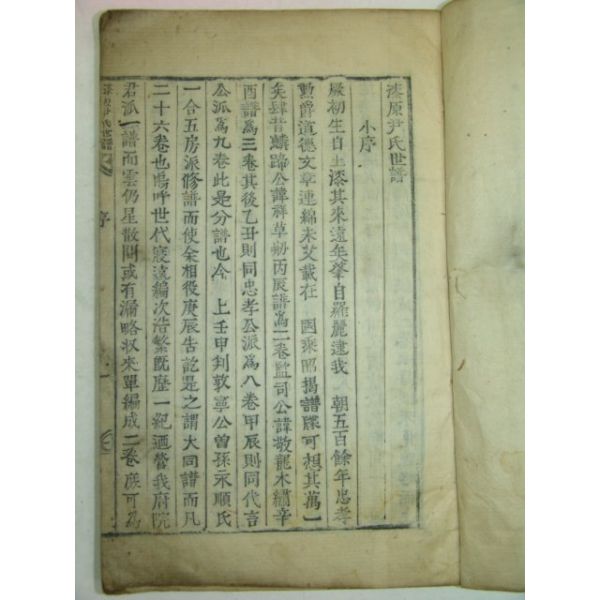 漆原尹氏世譜
小序
厥初生自土漆其來遠矣肇自羅麗逮我 朝五百餘年忠孝
勳爵道德文章連綿未艾載在 國乘昭揭譜牒可想其萬一
矣肆昔麟蹄公諱祥草刱丙辰譜爲二卷監司公諱敬龍木繡辛
酉譜爲三卷其後乙丑則同忠孝公派爲八卷甲辰則同代言
公派爲九卷此是分譜也今 上壬申判敦寧公曾孫永順氏
一合五房派修譜而使余相役庚辰告訖是之謂大同譜而凡
二十六卷也嗚呼世代寢遠編次浩繁旣歷一紀迺營我府院
君派一譜而雲仍星散間或有漏略收來單編成二卷庶可爲
漆原尹氏世譜
序